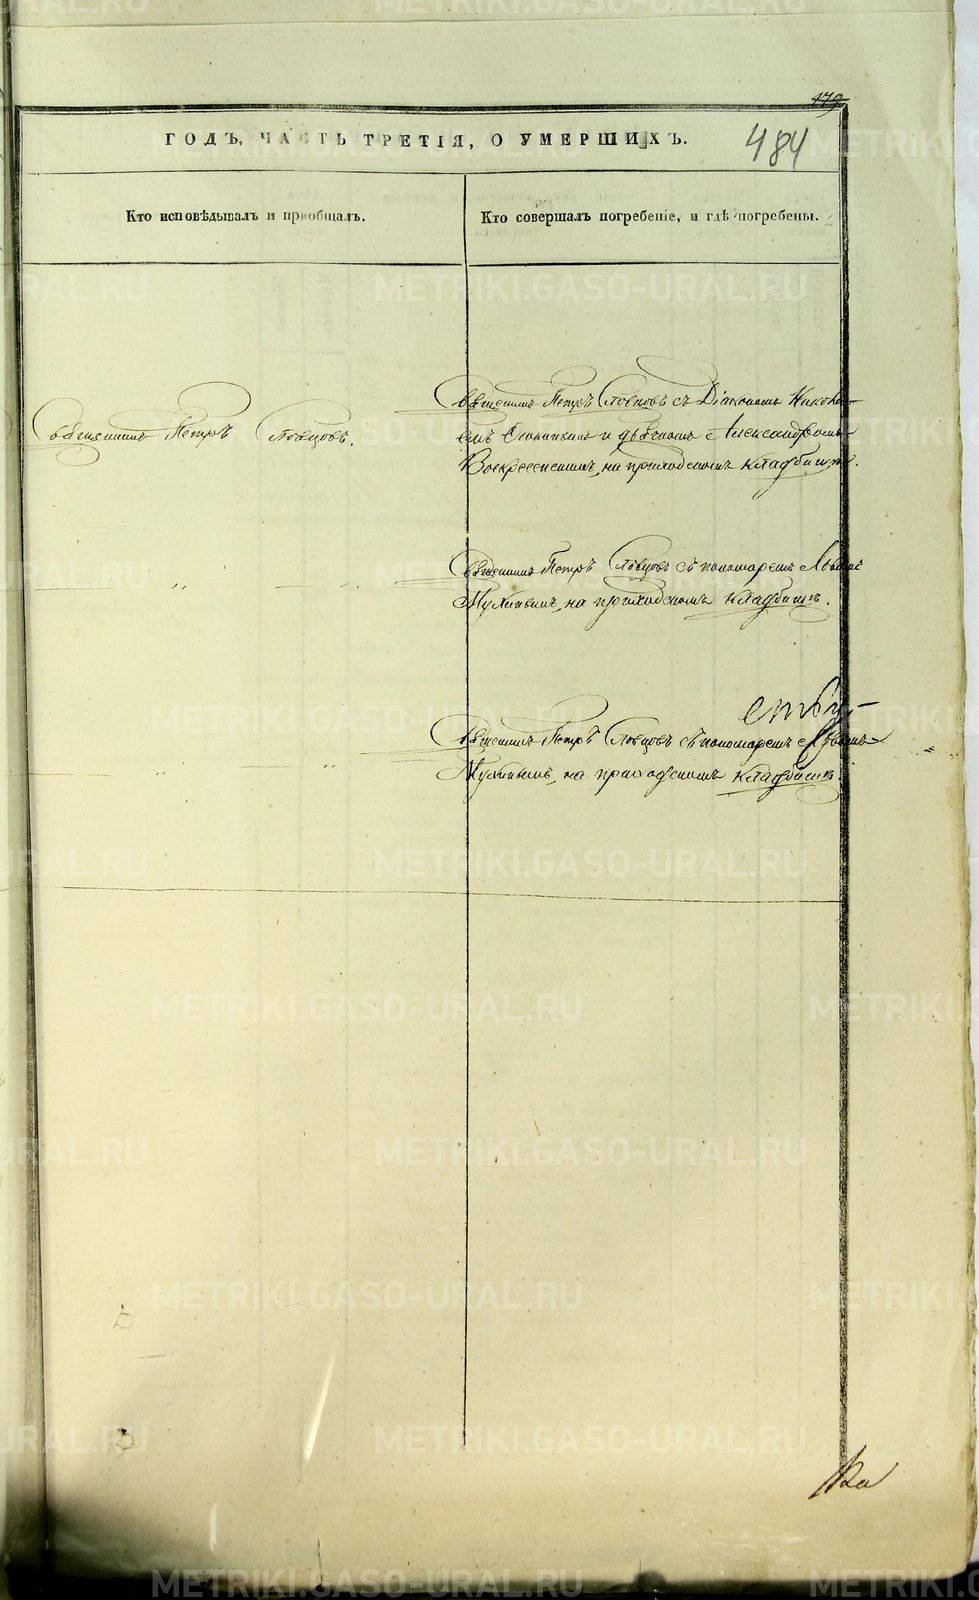 179
ГОДЪ, ЧАСТЬ ТРЕТІЯ, О УМЕРШИХЪ.
484
Кто исповѣдывалъ и пріобщалъ.
Кто совершалъ погребеніе, и гдѣ погребены.
Священникъ Петръ Словцовъ.
Священникъ Петръ Словцовъ съ Діакономъ Никола-
емъ и дьячкомъ Александромъ
Воскресенскимъ, на приходскомъ кладбищѣ.
" "
Священникъ Петръ Словцовъ съ пономаремъ
Мухинымъ, на приходскомъ кладбищѣ.
" "
Священникъ Петръ Словцовъ съ пономаремъ
Мухинымъ, на приходскомъ кладбищѣ.
METRIKI.GASO-URAL.RU